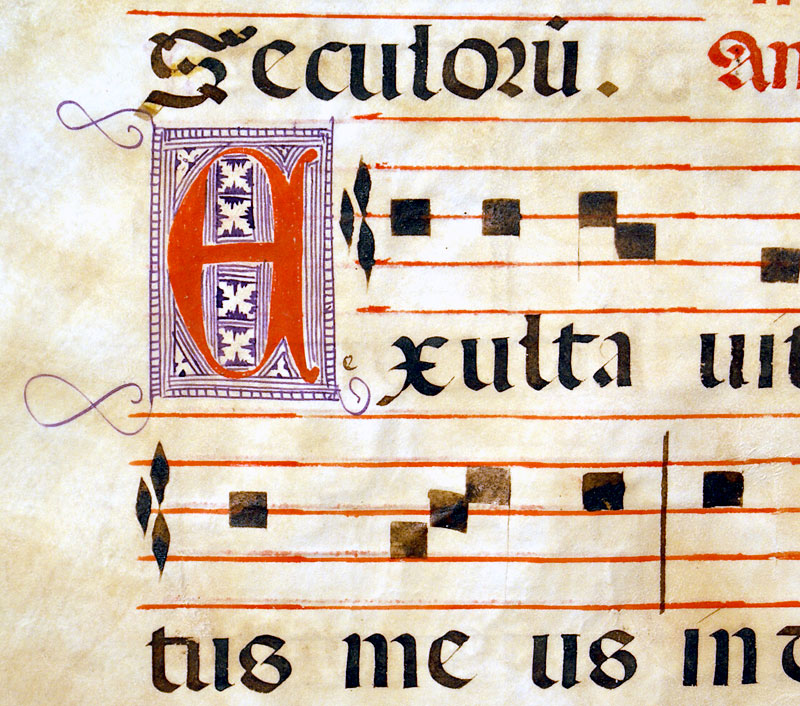 Seculorū. An
Exulta uit
tus me us in